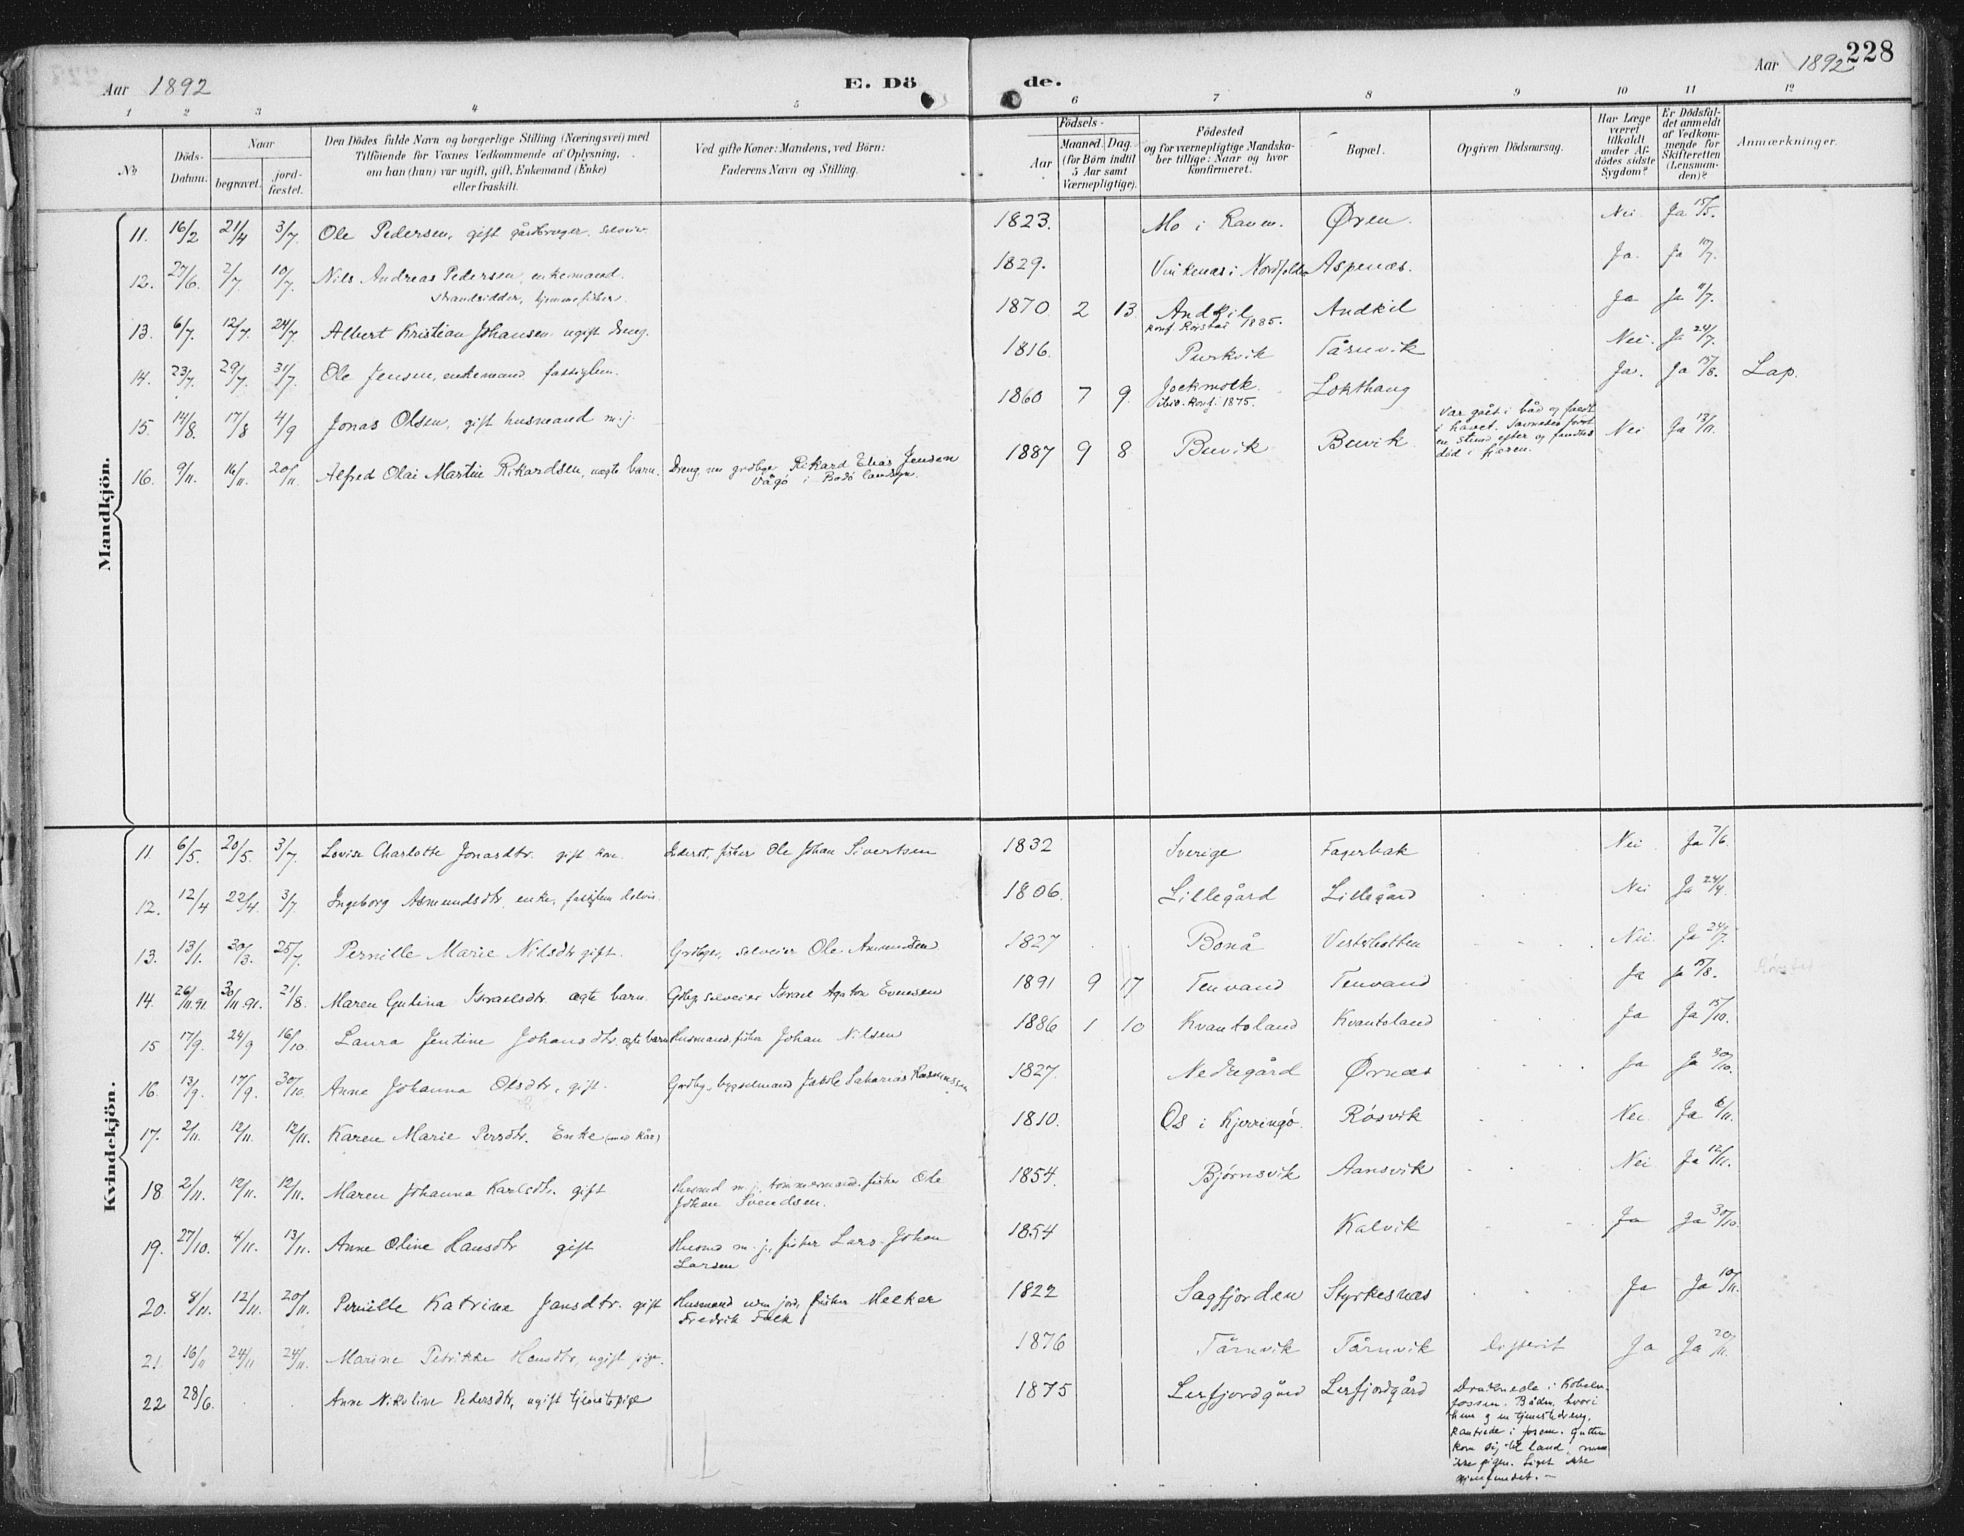 Aar 1892 E. Dö de. Aar 1892 228
1 2 3 4 5 6 7 8 9 10 11 12
No
Döds-Datum.
Naar
begravet.
jord-fæstet.
Den Dödes fulde Navn og borgerlige Stilling (Næringsvei) med
Tilföiende for Voxnes Vedkommende af Oplysning,
om han (hun) var ugift, gift, Enkemand (Enke)
eller fraskilt.
Ved gifte Koner: Mandens, ved Börn:
Faderens Navn og Stilling.
Födsels-
Aar
Maaned. Dag.
(for Börn indtil
5 Aar samt
Værnepligtige).
Födested
og for værnepligtige Mandska-
ber tillige: Naar og hvor
konfirmeret.
Bopæl.
Opgiven Dödsaarsag.
Har Læge
været
tilkaldt
under Af-
dödes sidste
Sygdom?
Er Dödsfal-
det anmeldt
af Vedkom-
mende for
Skifteretten
(Lensman-
den)?
Anmærkninger.
Mandkjön.
11. 16/2 21/4 3/7 Ole Pedersen, gift gårdbruger, 1823. Mo i Ranen. Øren. Nei Ja 15/5.
12. 27/6. 2/7. 10/7. Nils Andreas Pedersen, enkemand. 1829. Vinkenæs i Nordfolden Aspenæs. Ja. Ja 10/7.
strandsidder, hjemmefisker.
13. 6/7. 12/7. 24/7. Albert Kristian Johansen ugift dreng. 1870 2 13 Andkil Andkil Ja Ja 11/7.
konf. Rørstad 1885.
14. 23/7. 29/7. 31/7. Ole Jensen, enkemand, fattiglem. 1816. Purkvik Tårnvik Nei. Ja 24/7.
15. 14/8. 17/8 4/9 Jonas Olsen, gift husmand m. j. 1860 7 9 Jockmock Lokthaug Ja. Ja 15/8. Lap.
ibid. konf. 1875.
16. 9/11. 16/11. 20/11. Alfred Olai Martin Rikardsen, ægte barn. Dreng grdbr. Rikard Elias Jensen 1887 9 8 Buvik Buvik Nei Ja 13/11.
Vågø i Bodø landsogn.
Var gået i båd og faldt
i håvet. Savnedes først
en stund efter og fandtes
død i fjæren.
Kvindekjön.
11. 6/5. 20/5. 3/7. Lovise Charlotte Jonasdtr. gift kone. Inderst, fisker Ole Johan Sivertsen 1832 Sverige Fagerbak Nei Ja 7/6.
12. 12/4 22/4. 3/7. Ingeborg Asmundsdtr. enke, fattiglem delvis. 1806. Lillegård Lillegård Nei Ja 24/4.
13. 13/1. 20/3. 25/7 Pernille Marie Nilsdtr gift. Grdbgr, selveier Ole Amundsen 1827 Bonå Vesterbotten Nei. Ja 24/7.
14. 26/11.91. 30/11.91. 21/8. Maren Gutina Israelsdtr. ægte barn. Gdbg selveier Israel Agaton Evensen 1891 9 17 Tenvand Tenvand Ja Ja 15/8. Rørstad
15 17/9. 24/9 16/10. Laura Jentine Johansdtr. ægte barn Husmand, fisker Johan Nilsen 1886 1 10 Kvantoland Kvantoland Ja Ja 15/10.
16. 13/9. 17/9. 30/10. Anne Johanna Olsdtr, gift. Grdbg., bygselmand Jakob Sakarias Rasmussen 1827. Nedregård Ørnæs Ja Ja 30/10.
17. 2/11. 12/11. 12/11. Karen Marie Persdtr. Enke (med kår) 1810. Os i Kjerringø. Røsvik Nei. Ja 6/11.
18 2/11. 12/11. 12/11. Maren Johanna Karlsdtr. gift Husmd m. j. tømmermand. fisker Ole 1854. Bjørnsvik Aansvik Nei Ja 12/11.
Johan Svendsen.
19. 27/10. 4/11. 13/11. Anne Oline Hansdtr gift Husmd m. j., fisker Lars Johan 1854 Kalvik Ja Ja 30/10.
Larsen
20. 8/11. 12/11. 20/11. Pernille Katrine Jansdtr. gift Husmand uden jord, fisker Melker 1822 Sagfjorden Styrkesnæs Ja Ja 10/11.
Fredrik Falk
21. 16/11 24/11 24/11. Marine Petrikke Hansdtr, ugift pige. 1876 Tårnvik Tårnvik Difterit Ja Ja 20/11.
22 28/6. Anne Nikoline Pedersdtr, ugift tjenestepige 1875 Lerfjordgård Lerfjordgård Druknede i Kobels-
fossen. Båden, hvori
hun og en tjenestedreng,
kantrede i fossen. Gutten
kom sig til land, men
ikke pigen. Liget ikke
gjenfundet. —